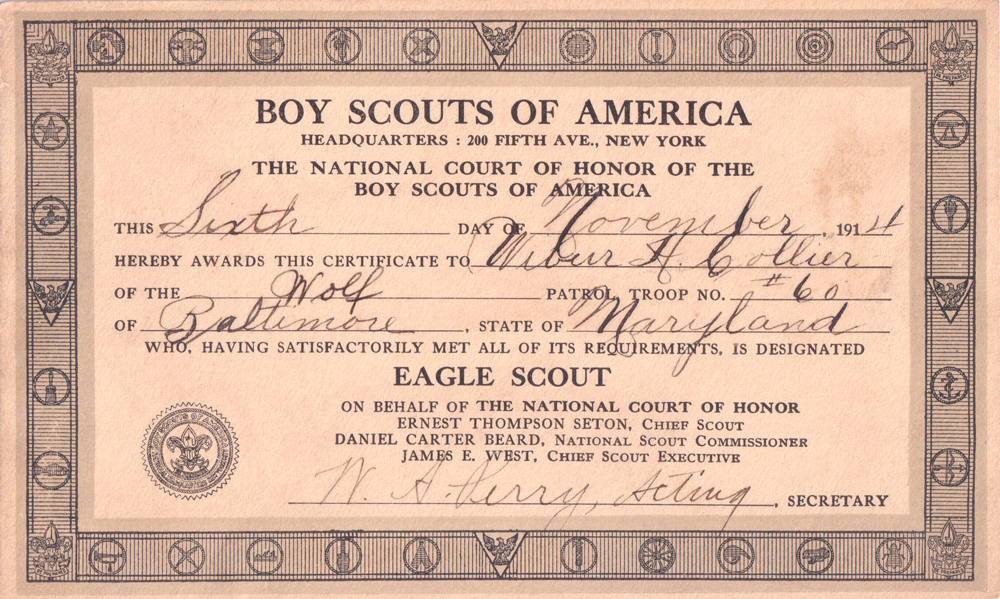 BOY SCOUTS OF AMERICA
HEADQUARTERS : 200 FIFTH AVE., NEW YORK
THE NATIONAL COURT OF HONOR OF THE
BOY SCOUTS OF AMERICA
THIS Sixth DAY OF November, 1914
HEREBY AWARDS THIS CERTIFICATE TO Wibur H. Collier
OF THE Wolf PATROL TROOP NO. #60
OF Baltimore, STATE OF Maryland
WHO, HAVING SATISFACTORILY MET ALL OF ITS REQUIREMENTS, IS DESIGNATED
EAGLE SCOUT
ON BEHALF OF THE NATIONAL COURT OF HONOR
ERNEST THOMPSON SETON, CHIEF SCOUT
DANIEL CARTER BEARD, NATIONAL SCOUT COMMISSIONER
JAMES E. WEST, CHIEF SCOUT EXECUTIVE
W. A. Perry, Acting, SECRETARY
BE PREPARED
BE PREPARED